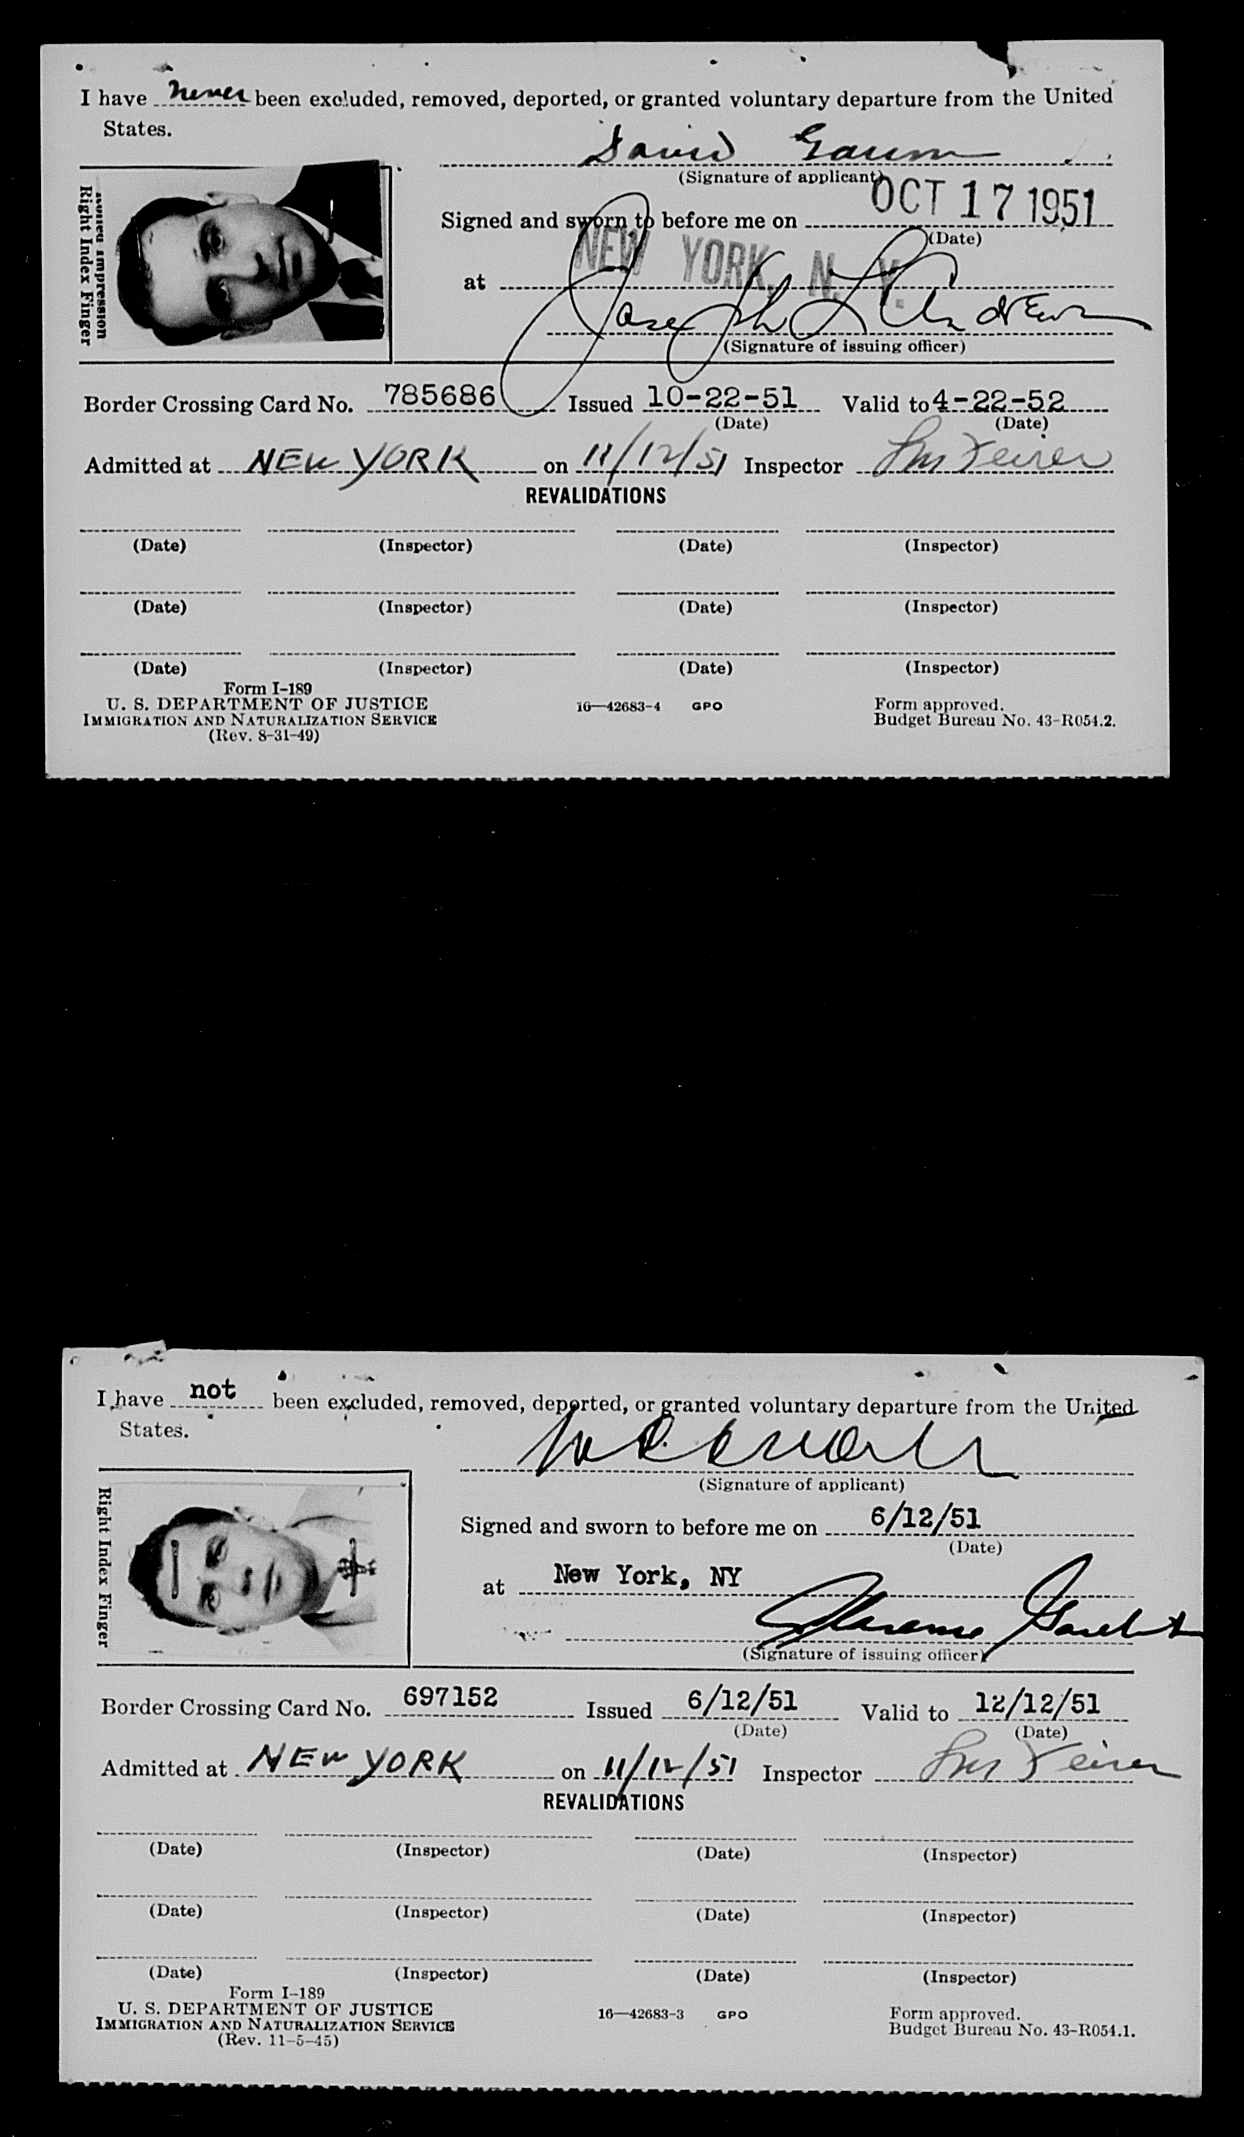 I have never been excluded, removed, deported, or granted voluntary departure from the United
States.
David
(Signature of applicant)
OCT 17 1951
Signed and sworn to before me on
(Date)
NEW YORK, N. Y.
at
Joseph L Andrews
(Signature of issuing officer)
Rolled impression
Right Index Finger
Border Crossing Card No. 785686 Issued 10-22-51 Valid to 4-22-52
(Date) (Date)
Admitted at NEW YORK on 11/12/51 Inspector
REVALIDATIONS
(Date) (Inspector) (Date) (Inspector)
(Date) (Inspector) (Date) (Inspector)
(Date) (Inspector) (Date) (Inspector)
Form I-189
U. S. DEPARTMENT OF JUSTICE
IMMIGRATION AND NATURALIZATION SERVICE
(Rev. 8-31-49)
16—42683-4 GPO
Form approved.
Budget Bureau No. 43-R054.2.
I have not been excluded, removed, deported, or granted voluntary departure from the United
States.
(Signature of applicant)
Signed and sworn to before me on 6/12/51
(Date)
at New York, NY
(Signature of issuing officer)
Right Index Finger
Border Crossing Card No. 697152 Issued 6/12/51 Valid to 12/12/51
(Date) (Date)
Admitted at NEW YORK on 11/12/51 Inspector
REVALIDATIONS
(Date) (Inspector) (Date) (Inspector)
(Date) (Inspector) (Date) (Inspector)
(Date) (Inspector) (Date) (Inspector)
Form I-189
U. S. DEPARTMENT OF JUSTICE
IMMIGRATION AND NATURALIZATION SERVICE
(Rev. 11-5-45)
16—42683-3 GPO
Form approved.
Budget Bureau No. 43-R054.1.